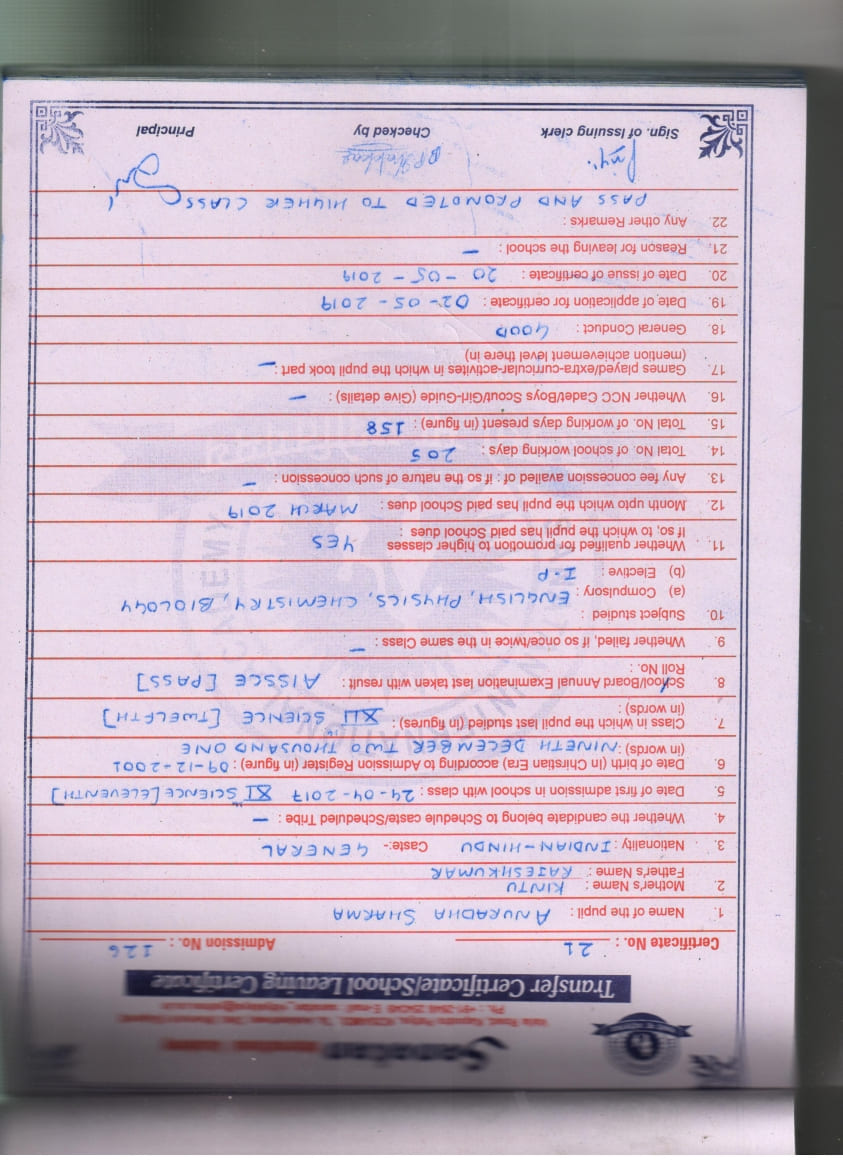 Sanskar
Transfer Certificate/School Leaving Certificate
Certificate No. : 21 Admission No. : 126
1. Name of the pupil : ANURADHA SHARMA
2. Mother's Name : KINTU
Father's Name : RAJESHKUMAR
3. Nationality : INDIAN-HINDU Caste:- GENERAL
4. Whether the candidate belong to Schedule caste/Scheduled Tribe : —
5. Date of first admission in school with class : 24-04-2017 XI SCIENCE [ELEVENTH]
6. Date of birth (In Chirstian Era) according to Admission Register (in figure) : 09-12-2001
(in words) : NINETH DECEMBER TWO THOUSAND ONE
7. Class in which the pupil last studied (in figures) : XII SCIENCE [TWELFTH]
(in words) :
8. School/Board Annual Examination last taken with result : AISSCE [PASS]
Roll No. :
9. Whether failed, if so once/twice in the same Class : —
10. Subject studied :
(a) Compulsory : ENGLISH, PHYSICS, CHEMISTRY, BIOLOGY
(b) Elective : I.P
11. Whether qualified for promotion to higher classes YES
If so, to which the pupil has paid School dues :
12. Month upto which the pupil has paid School dues : MARCH 2019
13. Any fee concession availed of : if so the nature of such concession : —
14. Total No. of school working days : 205
15. Total No. of working days present (in figure) : 158
16. Whether NCC Cadet/Boys Scout/Girl-Guide (Give details) : —
17. Games played/extra-curricular-activites in which the pupil took part : —
(mention achievement level there in)
18. General Conduct : GOOD
19. Date of application for certificate : 02-05-2019
20. Date of issue of certificate : 20-05-2019
21. Reason for leaving the school : —
22. Any other Remarks :
PASS AND PROMOTED TO HIGHER CLASS
Sign. of Issuing clerk Checked by Principal